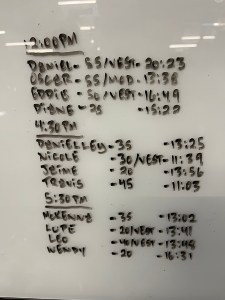 12:00PM
DANIEL - 55/VEST - 20:23
OSCAR - 55/MOD - 13:38
EDDIE - 50/VEST - 16:49
DIANE - 25 15:22
4:30PM
DANIELLEY - 35 - 13:25
NICOLE - 30/VEST - 11:39
JAIME - 20 - 13:56
TRAVIS - 45 - 11:03
5:30PM
MCKENNE - 35 - 13:02
LUPE - 20/VEST - 13:41
LEO - 40/VEST - 13:48
WENDY - 20 - 16:31